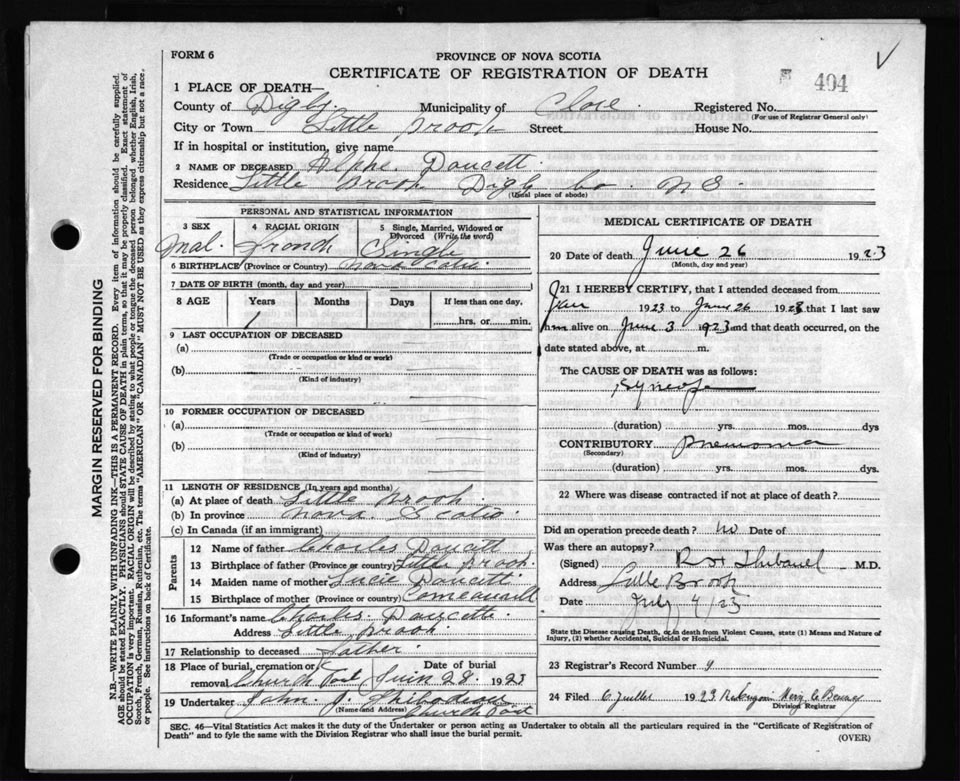 FORM 6
PROVINCE OF NOVA SCOTIA
CERTIFICATE OF REGISTRATION OF DEATH
404
1 PLACE OF DEATH—
County of Digby Municipality of Clare Registered No.
(For use of Registrar General only)
City or Town Little Brook Street House No.
If in hospital or institution, give name
2 NAME OF DECEASED Alphe Doucett
Residence Little Brook Digby Co. N S
(Usual place of abode)
PERSONAL AND STATISTICAL INFORMATION
3 SEX 4 RACIAL ORIGIN 5 Single, Married, Widowed or Divorced (Write the word)
Mal. French Single
6 BIRTHPLACE (Province or Country) Nova Scotia
7 DATE OF BIRTH (month, day and year)
8 AGE Years Months Days If less than one day,
1 hrs. or min.
9 LAST OCCUPATION OF DECEASED
(a)
(Trade or occupation or kind of work)
(b)
(Kind of industry)
10 FORMER OCCUPATION OF DECEASED
(a)
(Trade or occupation or kind of work)
(b)
(Kind of industry)
11 LENGTH OF RESIDENCE (In years and months)
(a) At place of death Little Brook
(b) In province Nova Scotia
(c) In Canada (if an immigrant)
Parents
12 Name of father Charles Doucett
13 Birthplace of father (Province or country) Little Brook
14 Maiden name of mother Lucie Doucett
15 Birthplace of mother (Province or country)
16 Informant's name Charles Doucett
Address Little Brook
17 Relationship to deceased father
18 Place of burial, cremation or removal Church Point Date of burial Juin 28 1923
19 Undertaker John J. Thibodeau
(Name and Address) Church Point
MEDICAL CERTIFICATE OF DEATH
20 Date of death June 26 1923
(Month, day and year)
21 I HEREBY CERTIFY, that I attended deceased from
1923 to June 26 1923 that I last saw
him alive on June 3 1923 and that death occurred, on the
date stated above, at m.
The CAUSE OF DEATH was as follows:
Syncope
(duration) yrs. mos. dys
CONTRIBUTORY Pneumonia
(Secondary)
(duration) yrs. mos. dys.
22 Where was disease contracted if not at place of death?
Did an operation precede death? no Date of
Was there an autopsy?
(Signed) M.D.
Address Little Brook
Date July 4/23
State the Disease causing Death, or in death from Violent Causes, state (1) Means and Nature of Injury, (2) whether Accidental, Suicidal or Homicidal.
23 Registrar's Record Number 9
24 Filed 6 Juillet 1923
Division Registrar
SEC. 46—Vital Statistics Act makes it the duty of the Undertaker or person acting as Undertaker to obtain all the particulars required in the "Certificate of Registration of Death" and to fyle the same with the Division Registrar who shall issue the burial permit.
(OVER)
MARGIN RESERVED FOR BINDING
N.B.—WRITE PLAINLY WITH UNFADING INK—THIS IS A PERMANENT RECORD. Every item of information should be carefully supplied.
AGE should be stated EXACTLY. PHYSICIANS should STATE CAUSE OF DEATH in plain terms, so that it may be properly classified. Exact statement of
OCCUPATION is very important. RACIAL ORIGIN will be described by stating to what people or tongue the deceased person belonged whether English, Irish,
Scotch, French, German, Russian, Ruthenian, etc. The terms "AMERICAN" OR "CANADIAN" MUST NOT BE USED as they express citizenship but not a race.
or people. See instructions on back of Certificate.